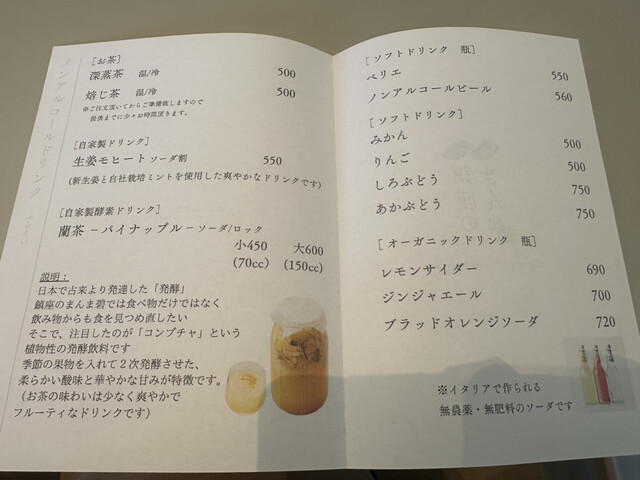 ノンアルコールドリンク
[お茶]
深蒸茶 温/冷 500
焙じ茶 温/冷 500
※ご注文頂いてからご準備致しますので
提供までに少々お時間頂きます。
[自家製ドリンク]
生姜モヒート ソーダ割 550
(新生姜と自社栽培ミントを使用した爽やかなドリンクです)
[自家製酵素ドリンク]
蘭茶 －パイナップル－ ソーダ/ロック
小450 大600
(70cc) (150cc)
説明：
日本で古来より発達した「発酵」
鎮座のまんま碧では食べ物だけではなく
飲み物からも食を見つめ直したい
そこで、注目したのが「コンブチャ」という
植物性の発酵飲料です
季節の果物を入れて２次発酵させた、
柔らかい酸味と華やかな甘みが特徴です。
(お茶の味わいは少なく爽やかで
フルーティなドリンクです)
[ソフトドリンク 瓶]
ペリエ 550
ノンアルコールビール 560
[ソフトドリンク]
みかん 500
りんご 500
しろぶどう 750
あかぶどう 750
[オーガニックドリンク 瓶]
レモンサイダー 690
ジンジャエール 700
ブラッドオレンジソーダ 720
※イタリアで作られる
無農薬・無肥料のソーダです